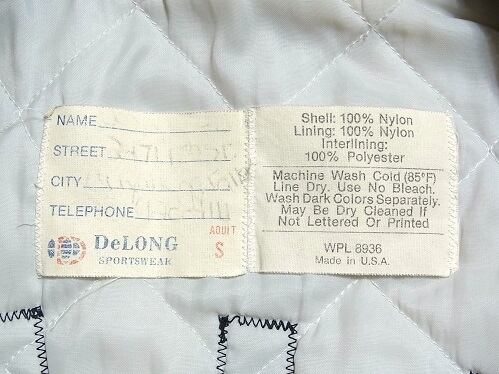 NAME
STREET
CITY
TELEPHONE
DeLONG
SPORTSWEAR
ADULT
S
Shell: 100% Nylon
Lining: 100% Nylon
Interlining:
100% Polyester
Machine Wash Cold (85°F)
Line Dry. Use No Bleach.
Wash Dark Colors Separately.
May Be Dry Cleaned If
Not Lettered Or Printed
WPL 8936
Made in U.S.A.